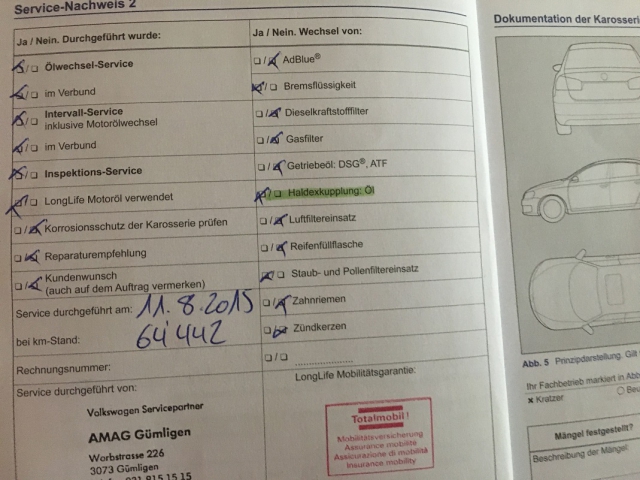 Service-Nachweis 2
Ja / Nein. Durchgeführt wurde:
Ölwechsel-Service
im Verbund
Intervall-Service
inklusive Motorölwechsel
im Verbund
Inspektions-Service
LongLife Motoröl verwendet
Korrosionsschutz der Karosserie prüfen
Reparaturempfehlung
Kundenwunsch
(auch auf dem Auftrag vermerken)
Service durchgeführt am: 11.8.2015
bei km-Stand: 64'442
Rechnungsnummer:
Service durchgeführt von:
Volkswagen Servicepartner
AMAG Gümligen
Worbstrasse 226
3073 Gümligen
Ja / Nein. Wechsel von:
AdBlue®
Bremsflüssigkeit
Dieselkraftstofffilter
Gasfilter
Getriebeöl: DSG®, ATF
Haldexkupplung: Öl
Luftfiltereinsatz
Reifenfüllflasche
Staub- und Pollenfiltereinsatz
Zahnriemen
Zündkerzen
LongLife Mobilitätsgarantie:
Totalmobil!
Mobilitätsversicherung
Assurance mobilité
Assicurazione di mobilità
Insurance mobility
Dokumentation der Karosserie
Abb. 5 Prinzipdarstellung. Gilt
Ihr Fachbetrieb markiert in Abb
Kratzer
Mängel festgestellt?
Beschreibung der Mängel